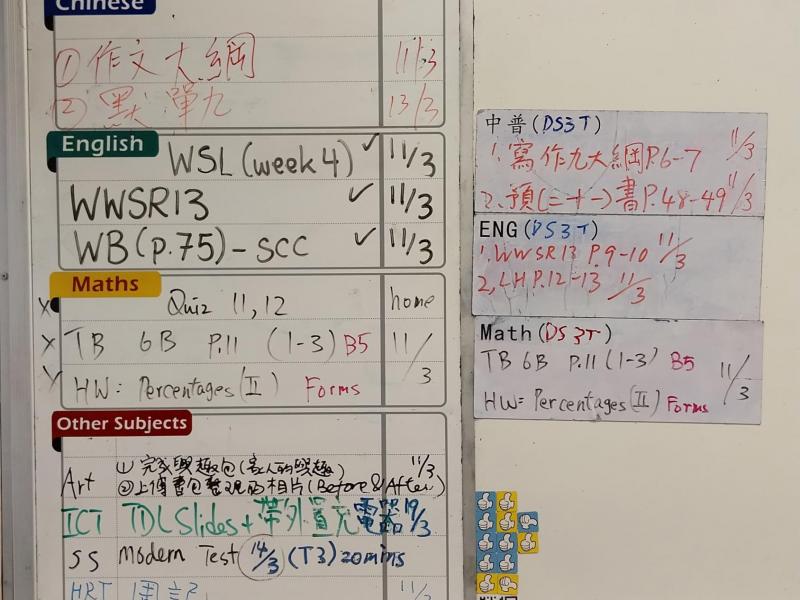 Chinese
① 作文大綱 11/3
② 默單九 13/3
English
WSL (week 4) ✓ 11/3
WWSR13 ✓ 11/3
WB (p.75) - SCC ✓ 11/3
Maths
Quiz 11, 12 home
TB 6B P.11 (1-3) B5 11/3
HW: Percentages (II) Forms
Other Subjects
Art ① 完成興趣包(客人的興趣) 11/3
②上傳書包整理的相片(Before & After)
ICT TDL Slides + 帶外置充電器 19/3
SS Modern Test 14/3 (T3) 20mins
HRT 週記 11/3
中普(DS3T)
1. 寫作九大綱P.6-7 11/3
2. 預(二十一)書P.48-49 11/3
ENG(DS3T)
1. WWSR13 P.9-10 11/3
2, LH P.12-13 11/3
Math(DS3T)
TB 6B P.11 (1-3) B5 11/3
HW= Percentages (II) Forms